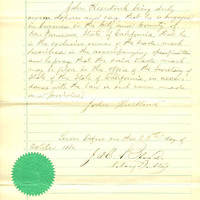 John Reardrick being duly
sworn deposes and says that he is engaged
in business in the City and County of
San Francisco, State of California, that he
is the exclusive owner of the trade mark
described in the accompanying specification
and prays that the said trade mark
may be filed in the office of the Secretary
of State of the State of California, in accor-
dance with the law in such cases made
and provided.
John
Sworn before me this day of
October
Notary Public